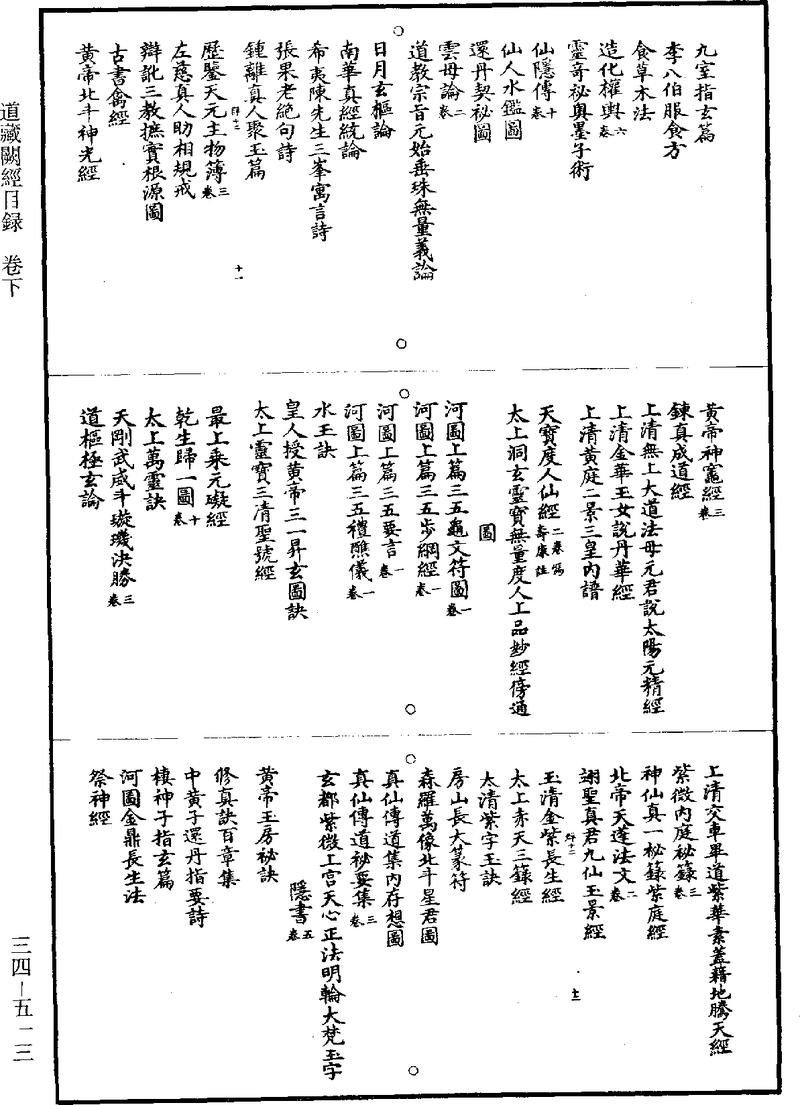 九室指玄篇
李八伯服食方
食草木法
造化權輿六卷
靈奇祕奧墨子術
仙隱傳十卷
仙人水鑑圖
還丹契祕圖
雲母論二卷
道教宗旨元始垂珠無量義論
日月玄樞論
南華真經統論
希夷陳先生三峯寓言詩
張果老絕句詩
鍾離真人聚玉篇
群十二
十一
歷鑒天元主物簿三卷
左慈真人助相規戒
辯訛三教摭實根源圖
古書禽經
黃帝北斗神光經
黃帝神竈經三卷
鍊真成道經
上清無上大道法母元君說太陽元精經
上清金華玉女說丹華經
上清黃庭二景三皇內譜
天寶度人仙經二卷馮壽康註
太上洞玄靈寶無量度人上品妙經傍通
圖
河圖上篇三五龜文符圖一卷
河圖上篇三五步綱經一卷
河圖上篇三五要言一卷
河圖上篇三五禮熙儀一卷
水玉訣
皇人授黃帝三一昇玄圖訣
太上靈寶三清聖號經
最上乘元礙經
乾生歸一圖十卷
太上萬靈訣
天剛武威斗璇璣決勝三卷
道樞極玄論
上清交車畢道紫華素蓋藉地騰天經
紫微內庭秘籙三卷
神仙真一祕籙紫庭經
北帝天蓬法文二卷
翊聖真君九仙玉景經
群十二
十二
玉清金紫長生經
太上赤天三籙經
太清紫字玉訣
房山長大篆符
森羅萬像北斗星君圖
真仙傳道集內存想圖
真仙傳道祕要集三卷
玄都紫微上宮天心正法明輪大梵玉字
隱書五卷
黃帝玉房祕訣
修真訣百章集
中黃子還丹指要詩
棲神子指玄篇
河圖金鼎長生法
祭神經
道藏闕經目録　卷下
三四－五一三